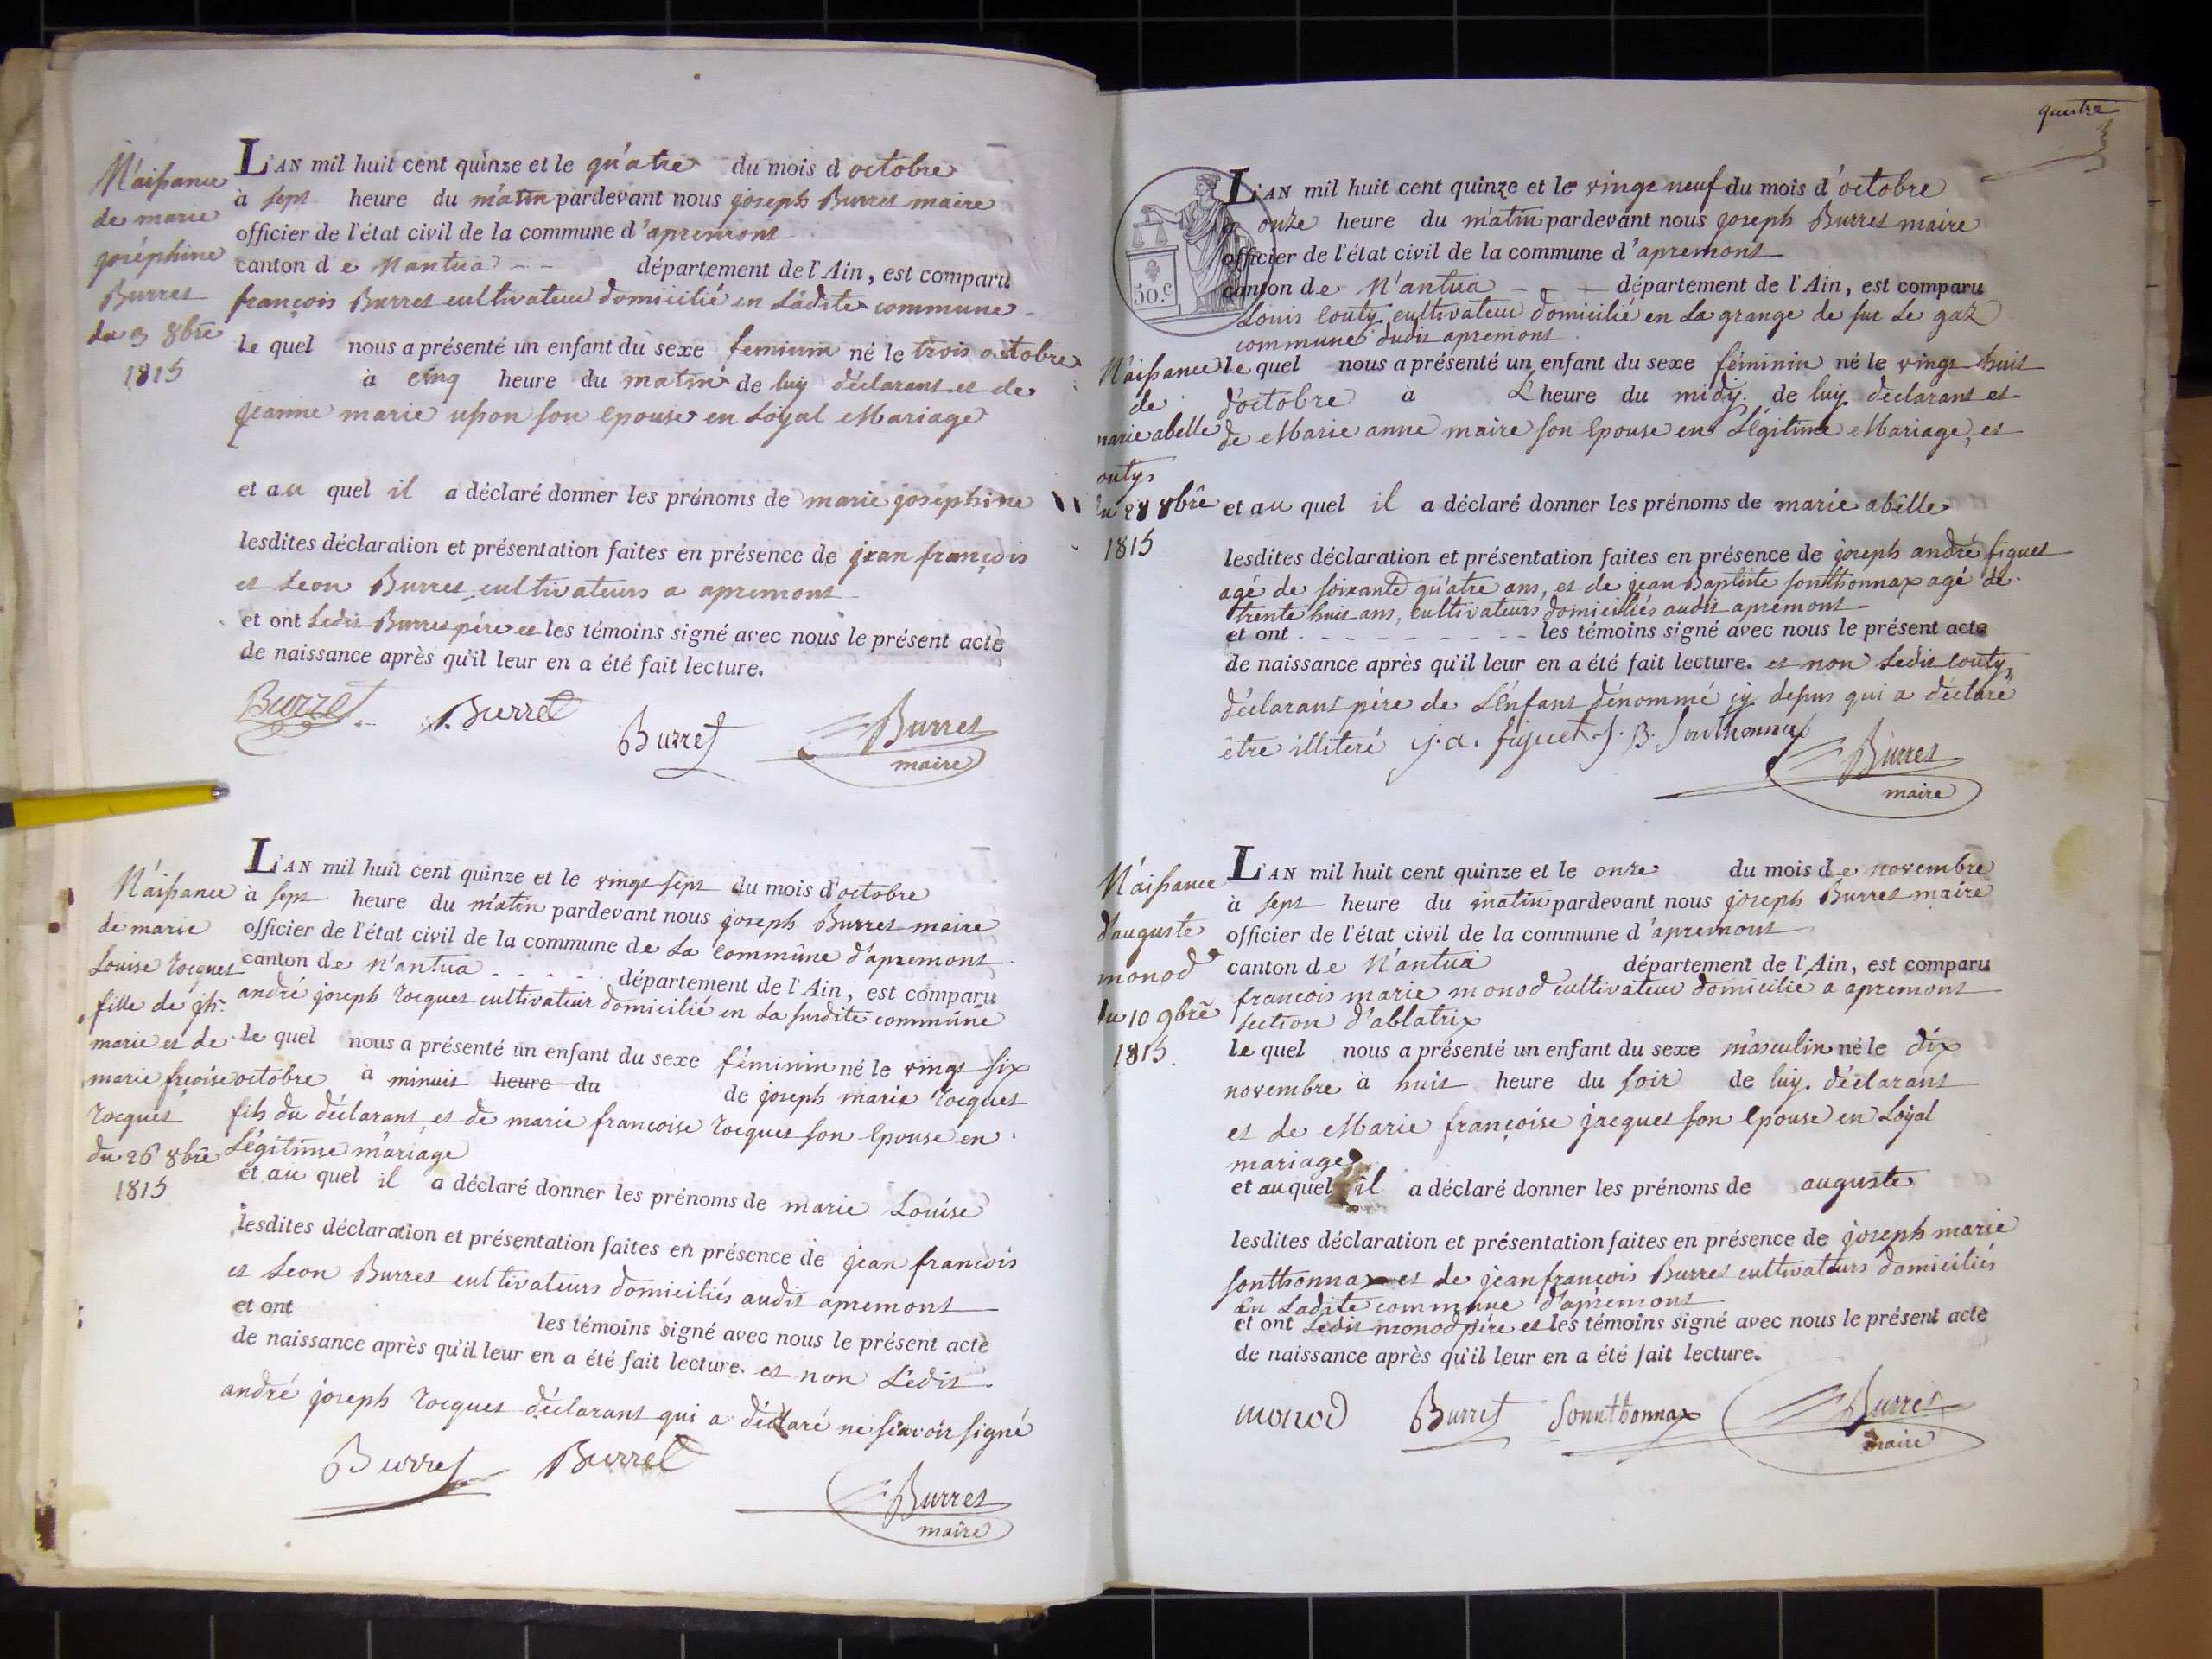 N'aissance
de marie
joséphine
Burret
du 3 8bre
1815
L'AN mil huit cent quinze et le qu'atre du mois d octobre
à sept heure du m'atin pardevant nous joseph Burret maire
officier de l'état civil de la commune d'apremont
canton d e Nantua département de l'Ain, est comparu
françois Burret cultivateur domicilié en Ladite commune
le quel nous a présenté un enfant du sexe feminin né le trois octobre
à cinq heure du matin de luy déclarant et de
jeanne marie upon son epouse en Loyal Mariage
et au quel il a déclaré donner les prénoms de marie joséphine
lesdites déclaration et présentation faites en présence de jean françois
et Leon Burret cultivateurs a apremont
et ont Ledit Burret père et les témoins signé avec nous le présent acte
de naissance après qu'il leur en a été fait lecture.
Burret Burret Burret Burret
maire
N'aissance
de marie
Louise Rocquet
fille de jh:
marie et de
marie frçoise
Rocquet
du 26 8bre
1815
L'AN mil huit cent quinze et le vingt sept du mois d'octobre
à sept heure du m'atin pardevant nous joseph Burret maire
officier de l'état civil de la commune de La commune d'apremont
canton de N'antua département de l'Ain, est comparu
andré joseph Rocquet cultivateur domicilié en La susdite commune
le quel nous a présenté un enfant du sexe féminin né le vingt six
octobre à minuit heure du de joseph marie Rocquet
fils du déclarant et de marie francoise Rocquet son epouse en
Légitime mariage
et au quel il a déclaré donner les prénoms de marie Louise
lesdites déclaration et présentation faites en présence de jean francois
et Leon Burret cultivateurs domiciliés audit apremont
et ont les témoins signé avec nous le présent acte
de naissance après qu'il leur en a été fait lecture. et non Ledit
andré joseph Rocquet déclarant qui a déclaré ne scavoir signé
Burret Burret Burret
maire
quatre
50.c
L'AN mil huit cent quinze et le vingt neuf du mois d'octobre
à onze heure du m'atin pardevant nous joseph Burret maire
officier de l'état civil de la commune d'apremont
canton de N'antua département de l'Ain, est comparu
Louis Couty cultivateur domicilié en La grange de sur Le gaz
commune dudit apremont
N'aissance
de
marie abelle
outy
du 28 8bre
1815
le quel nous a présenté un enfant du sexe féminin né le vingt huit
d'octobre à L'heure du midy de luy declarant et
de Marie anne maire son Epouse en Légitime Mariage, et
et au quel il a déclaré donner les prénoms de marie abelle
lesdites déclaration et présentation faites en présence de joseph andré figuet
agé de soixante qu'atre ans, et de jean Baptiste sontthonnax agé de
trente huit ans, cultivateurs domiciliés audit apremont
et ont les témoins signé avec nous le présent acte
de naissance après qu'il leur en a été fait lecture. et non Ledit Couty
déclarant père de L'enfant dénommé cy depus qui a déclaré
être illiteré j. a. figuet J. B. Sonthonnax
Burret
maire
N'aissance
d'auguste
monod
du 10 9bre
1815.
L'AN mil huit cent quinze et le onze du mois de novembre
à sept heure du matin pardevant nous joseph Burret maire
officier de l'état civil de la commune d'apremont
canton de N'antua département de l'Ain, est comparu
francois marie monod cultivateur domicilié a apremont
section d'ablatrix
le quel nous a présenté un enfant du sexe masculin né le dix
novembre à huit heure du soir de luy déclarant
et de Marie françoise jacquet son Epouse en Loyal
mariage
et au quel il a déclaré donner les prénoms de auguste
lesdites déclaration et présentation faites en présence de joseph marie
sontthonnax et de jean françois Burret cultivateurs domiciliés
en Ladite commune d'apremont
et ont Ledit monod père et les témoins signé avec nous le présent acte
de naissance après qu'il leur en a été fait lecture.
monod Burret Sonnthonnax Burret
maire